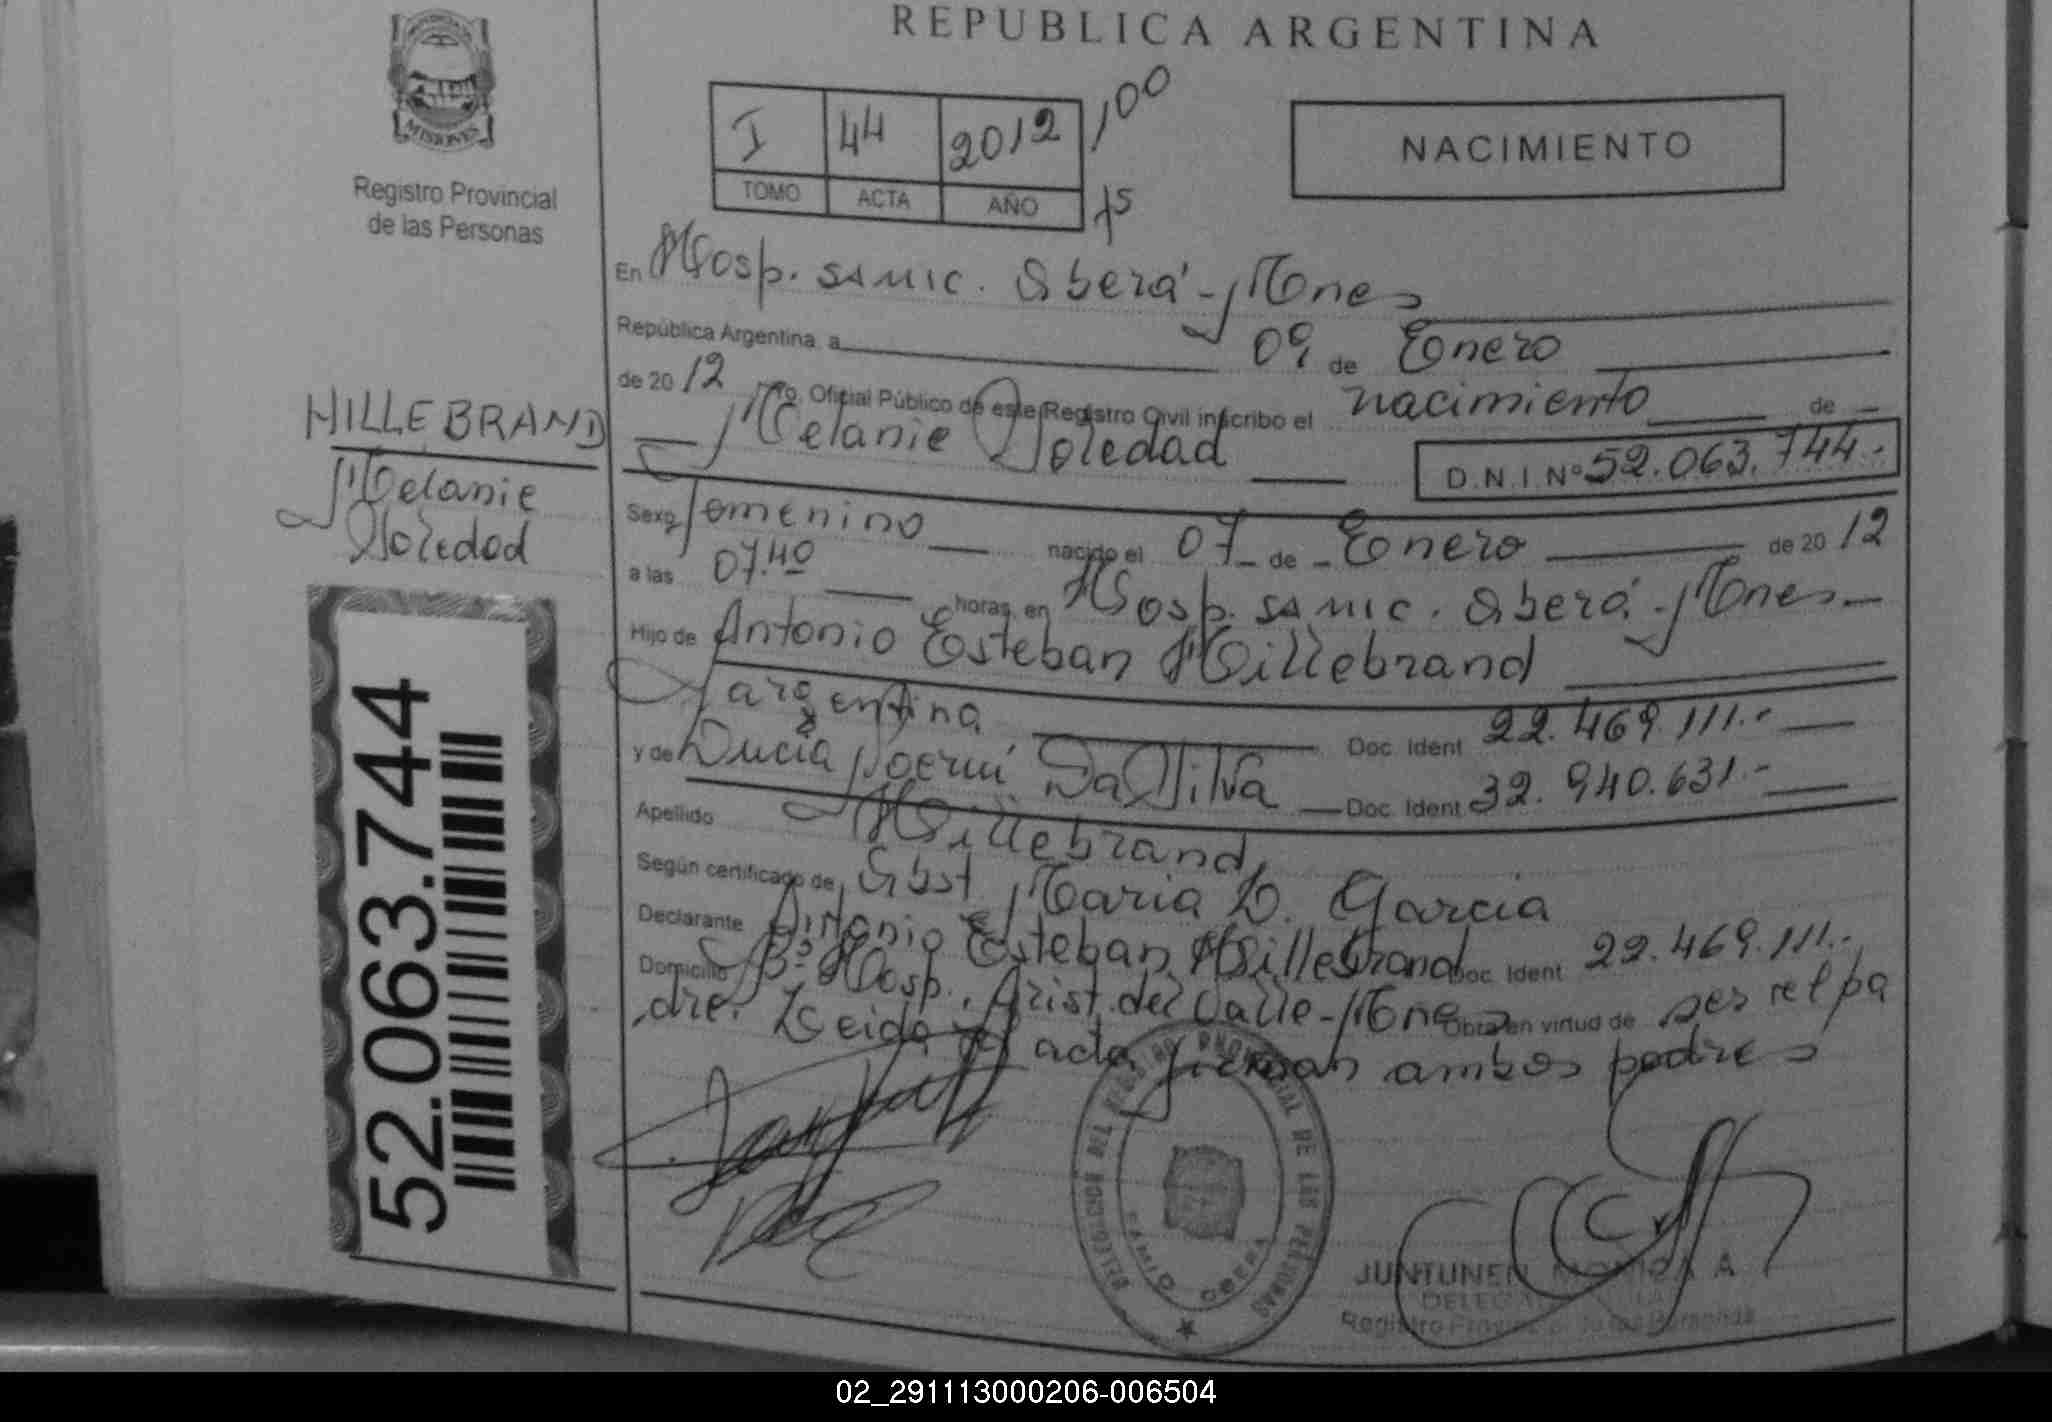 REPUBLICA ARGENTINA
PROVINCIA DE
MISIONES
Registro Provincial
de las Personas
I 44 2012 100
TOMO ACTA AÑO 15
NACIMIENTO
En Hosp. SAMIC. Oberá - Mnes
República Argentina, a 09 de Enero
de 20 12 Yo, Oficial Público de este Registro Civil inscribo el nacimiento de
Melanie Soledad
D.N.I. Nº 52.063.744.-
HILLEBRAND
Melanie
Soledad
Sexo femenino nacido el 07 de Enero de 20 12
a las 07.40 horas, en Hosp. SAMIC. Oberá - Mnes
Hijo de Antonio Esteban Hillebrand
argentina Doc. Ident. 22.469.111.-
y de Lucia Noemí Da Silva Doc. Ident. 32.940.631.-
Apellido Hillebrand
Según certificado de Obst Maria L. Garcia
Declarante Antonio Esteban Hillebrand Doc. Ident. 22.469.111.-
Domicilio Bº Hosp. Arist. del Valle - Mnes Obra en virtud de ser el pa
dre. Leida el acta firman ambos padres
52.063.744
DELEGACION DEL REGISTRO PROVINCIAL DE LAS PERSONAS
SAMIC OBERA
JUNTUNEN MONICA A
DELEGADA TITULAR
Registro Provincial de las Personas
02_291113000206-006504